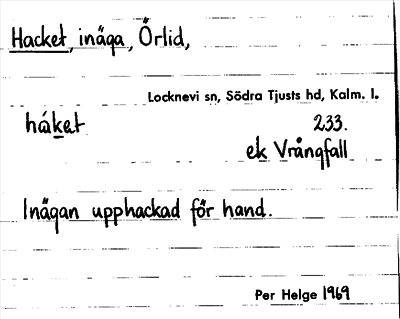 Hacket, inäga, Örlid,
Locknevi sn, Södra Tjusts hd, Kalm. l.
háket 233.
ek Vrångfall
Inägan upphackad för hand.
Per Helge 1969